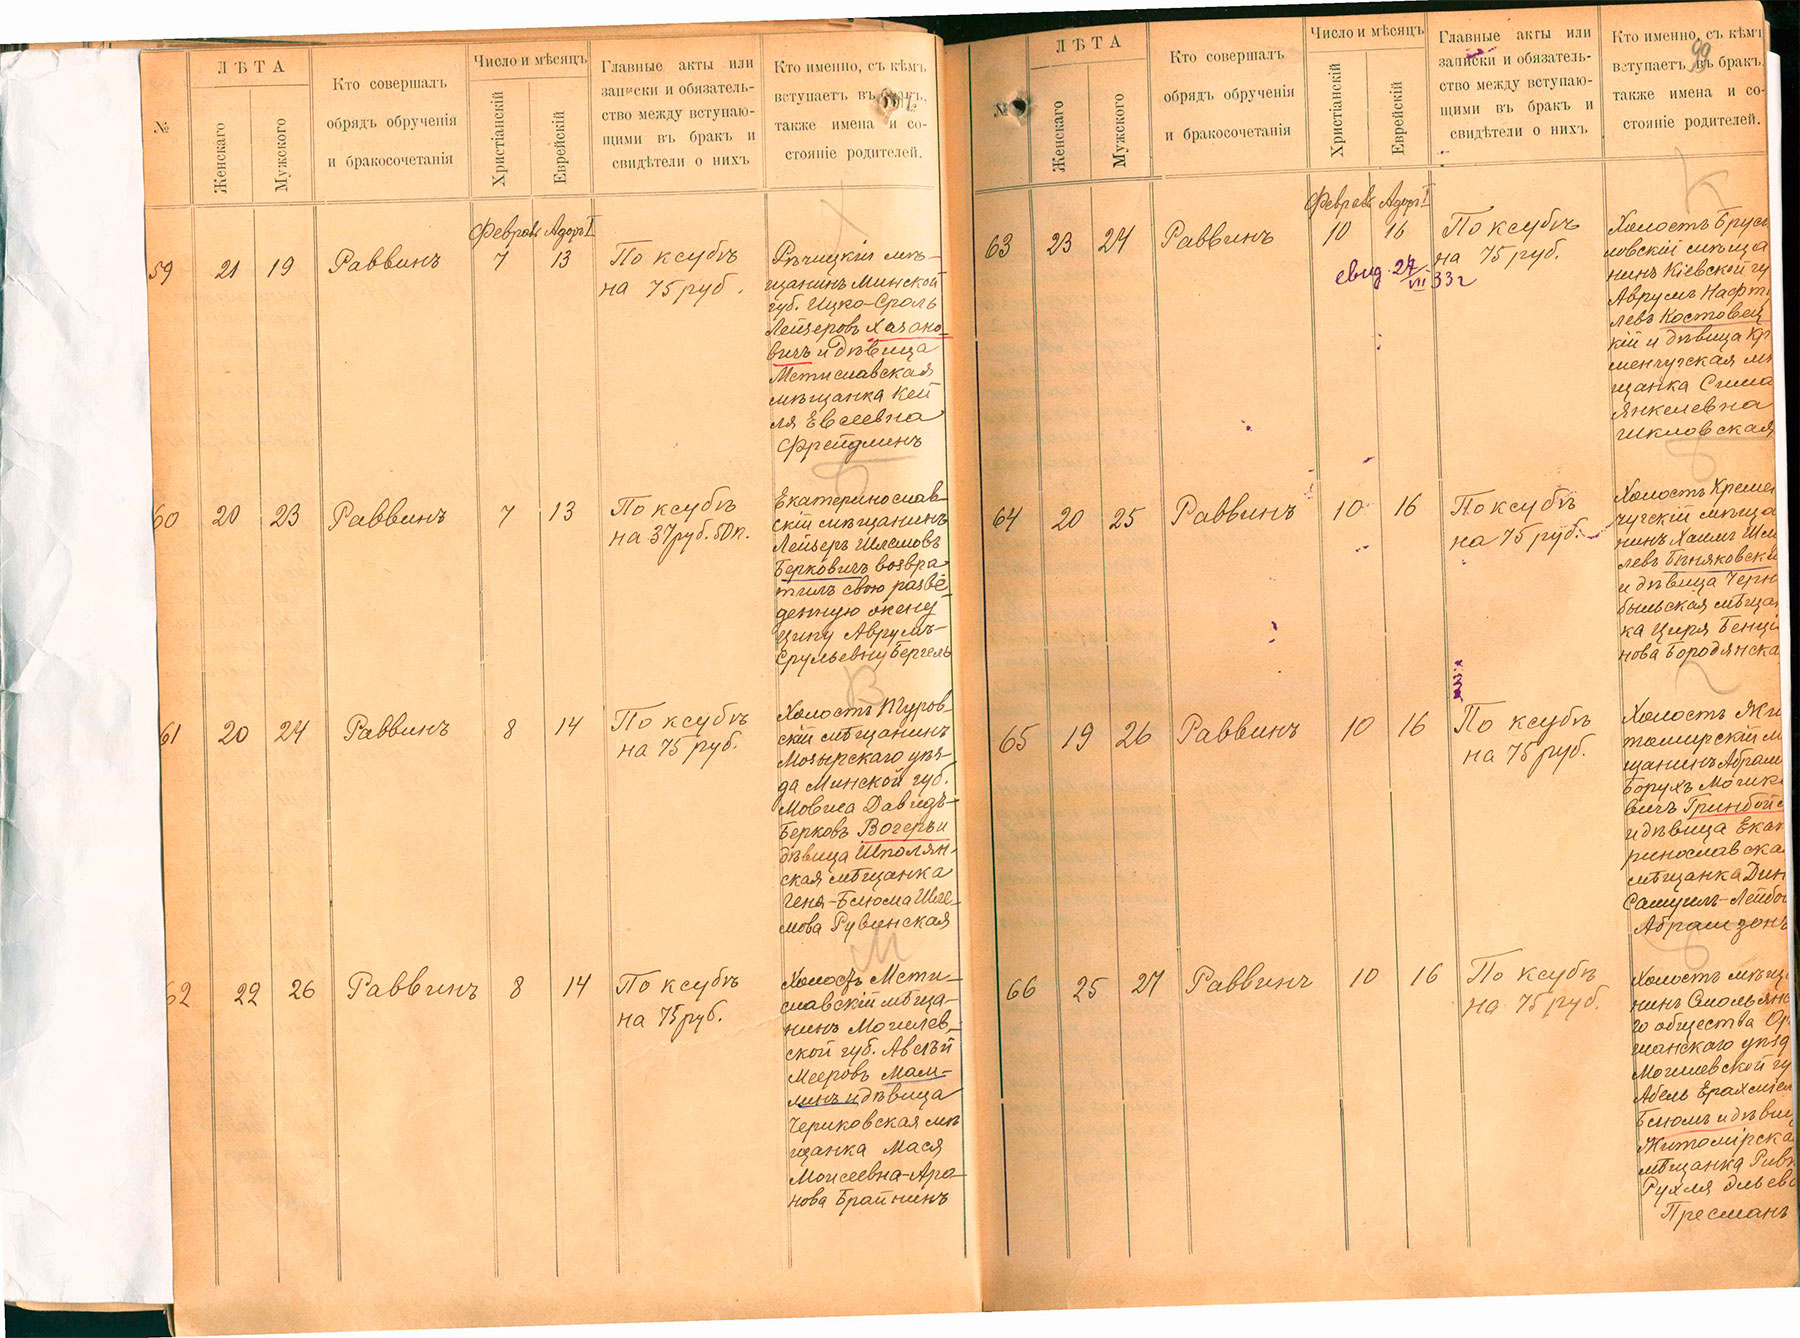 №
ЛѢТА
Женскаго
Мужского
Кто совершалъ
обрядъ обрученія
и бракосочетанія
Число и мѣсяцъ
Христіанскій
Еврейскій
Главные акты или
записки и обязатель-
ство между вступаю-
щими въ бракъ и
свидѣтели о нихъ
Кто именно, съ кѣмъ
вступаетъ въ бракъ,
также имена и со-
стояніе родителей.
Февраль Адоръ I
59 21 19 Раввинъ 7 13
По ксубѣ
на 75 руб.
Рѣчицкій мѣ-
щанинъ Минской
губ. Ицко-Сроль
Лейзеровъ Хазано-
вичъ и дѣвица
Мстиславская
мѣщанка Кей
ля Евсеевна
Фрейдлинъ
60 20 23 Раввинъ 7 13
По ксубѣ
на 37 руб. 50 к.
Екатеринослав-
скій мѣщанинъ
Лейзеръ Шлемовъ
Берковичъ возвра-
тилъ свою разве-
денную жену
Ципу Аврумъ-
Срульевну Бергель
61 20 24 Раввинъ 8 14
По ксубѣ
на 75 руб.
Холостъ Туров-
скій мѣщанинъ
Мозырскаго уѣз-
да Минской губ.
Мовша Давидъ-
Берковъ Вогеръ и
дѣвица Шполян-
ская мѣщанка
Геня-Блюма Шле-
мова Рувинская
62 22 26 Раввинъ 8 14
По ксубѣ
на 75 руб.
Холостъ Мсти-
славскій мѣща-
нинъ Могилев-
ской губ. Авсѣй
Мееровъ Мам-
линъ и дѣвица
Чериковская мѣ
щанка Мася
Моисеевна-Аро-
нова Брайнинъ
99
№
ЛѢТА
Женскаго
Мужского
Кто совершалъ
обрядъ обрученія
и бракосочетанія
Число и мѣсяцъ
Христіанскій
Еврейскій
Главные акты или
записки и обязатель-
ство между вступаю-
щими въ бракъ и
свидѣтели о нихъ
Кто именно, съ кѣмъ
вступаетъ въ бракъ,
также имена и со-
стояніе родителей.
Февраль Адоръ I
63 23 24 Раввинъ 10 16
По ксубѣ
на 75 руб.
свид. 27/VII 33 г
Холостъ Бруси
ловскій мѣща
нинъ Кіевской гу
Аврумъ Нафт
левъ Костовец
кій и дѣвица Кре
менчугская мѣ
щанка Сима
Янкелевна
Шкловская
64 20 25 Раввинъ 10 16
По ксубѣ
на 75 руб.
Холостъ Кремен
чугскій мѣща
нинъ Хаимъ Шм
левъ Бѣняковскі
и дѣвица Черно
быльская мѣщан
ка Цирля Бенці
нова Бородянска
65 19 26 Раввинъ 10 16
По ксубѣ
на 75 руб.
Холостъ Жи
томирскій м
щанинъ Абрам
Борухъ Мошко
вичъ Гринбой
и дѣвица Екат
ринославска
мѣщанка Дин
Самуилъ-Лейбо
Абрамзонъ
66 25 27 Раввинъ 10 16
По ксубѣ
на 75 руб.
Холостъ мѣща
нинъ Смольянс
го общества Ор
шанскаго уѣзд
Могилевской гу
Абель Ерахміел
Блюмъ и дѣвиц
Житомірска
мѣщанка Ривк
Рухля Эльев
Пресманъ